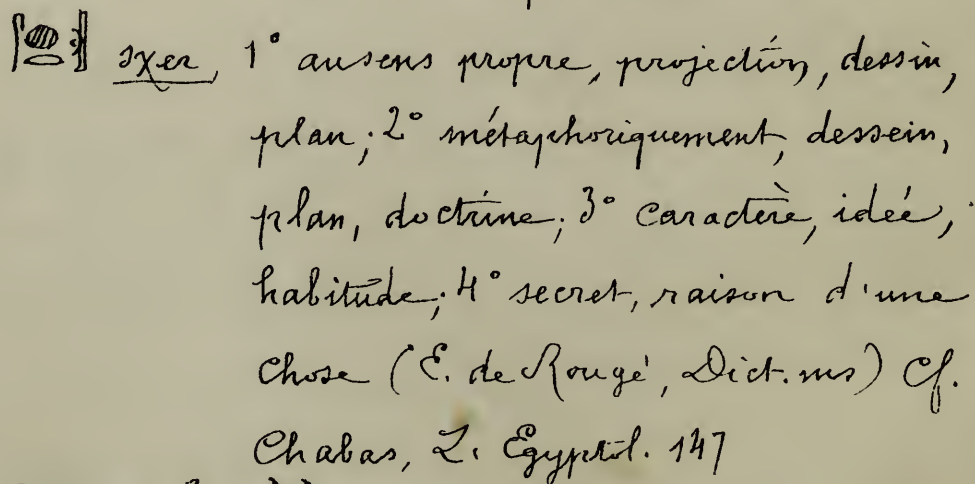 𓋴𓐍𓂋𓏛 sχer, 1° au sens propre, projection, dessin,
plan; 2° métaphoriquement, dessein,
plan, doctrine; 3° caractère, idée,
habitude; 4° secret, raison d'une
chose (E. de Rougé, Dict. ms) Cf.
Chabas, Z. Egyptol. 147